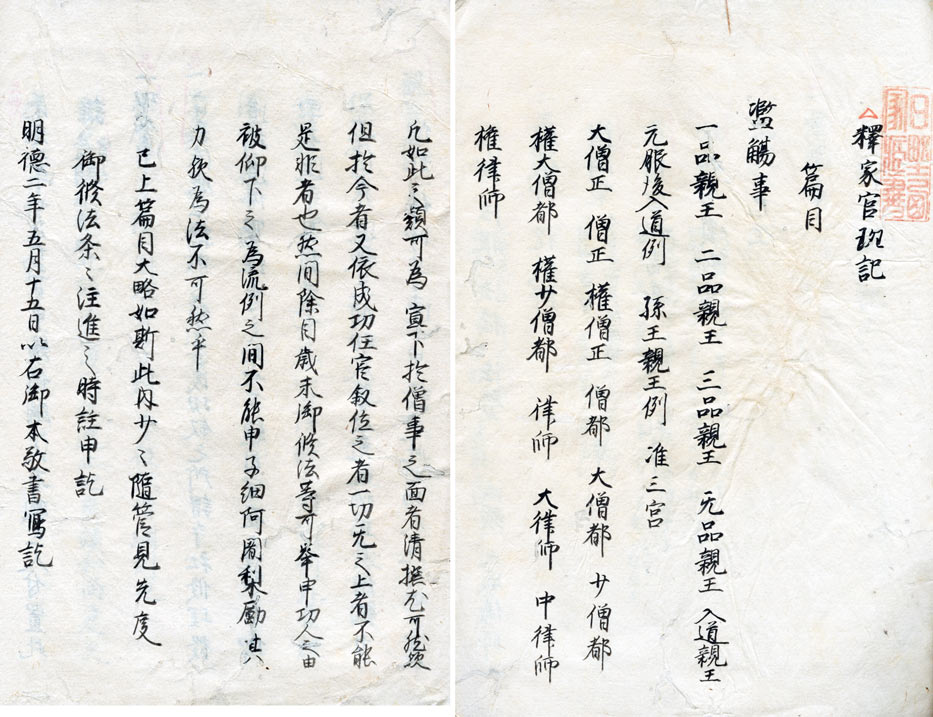 釋家官班記
篇目
濫觴事
一品親王 二品親王 三品親王 无品親王 入道親王
元服後入道例 孫王親王例 准三宮
大僧正 僧正 權僧正 僧都 大僧都 少僧都
權大僧都 權少僧都 律師 大律師 中律師
權律師
凡如此之類可為宣下於僧事之面者清撰尤可然歟
但於今者又依成功任官叙位之者一切无之上者不能
是非者也然間除目歳末御修法等可举申功人之由
被仰下之為流例之間不能申子細阿闍梨励其
力歟為法不可然乎
已上篇目大略如斯此内少々隨管見先度
御修法条々注進之時註申訖
明德二年五月十五日以右御本敬書寫訖